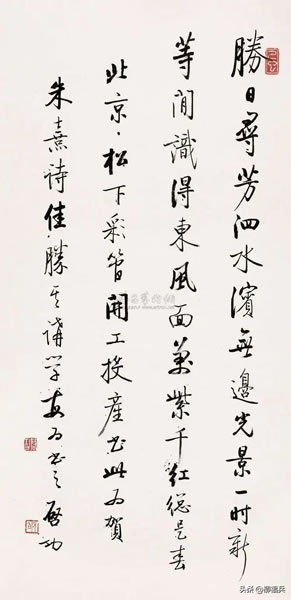 勝日尋芳泗水濱無邊光景一時新
等閒識得東風面萬紫千紅總是春
北京·松下彩管開工投產書此為賀
朱熹詩佳勝
啟功
头条@